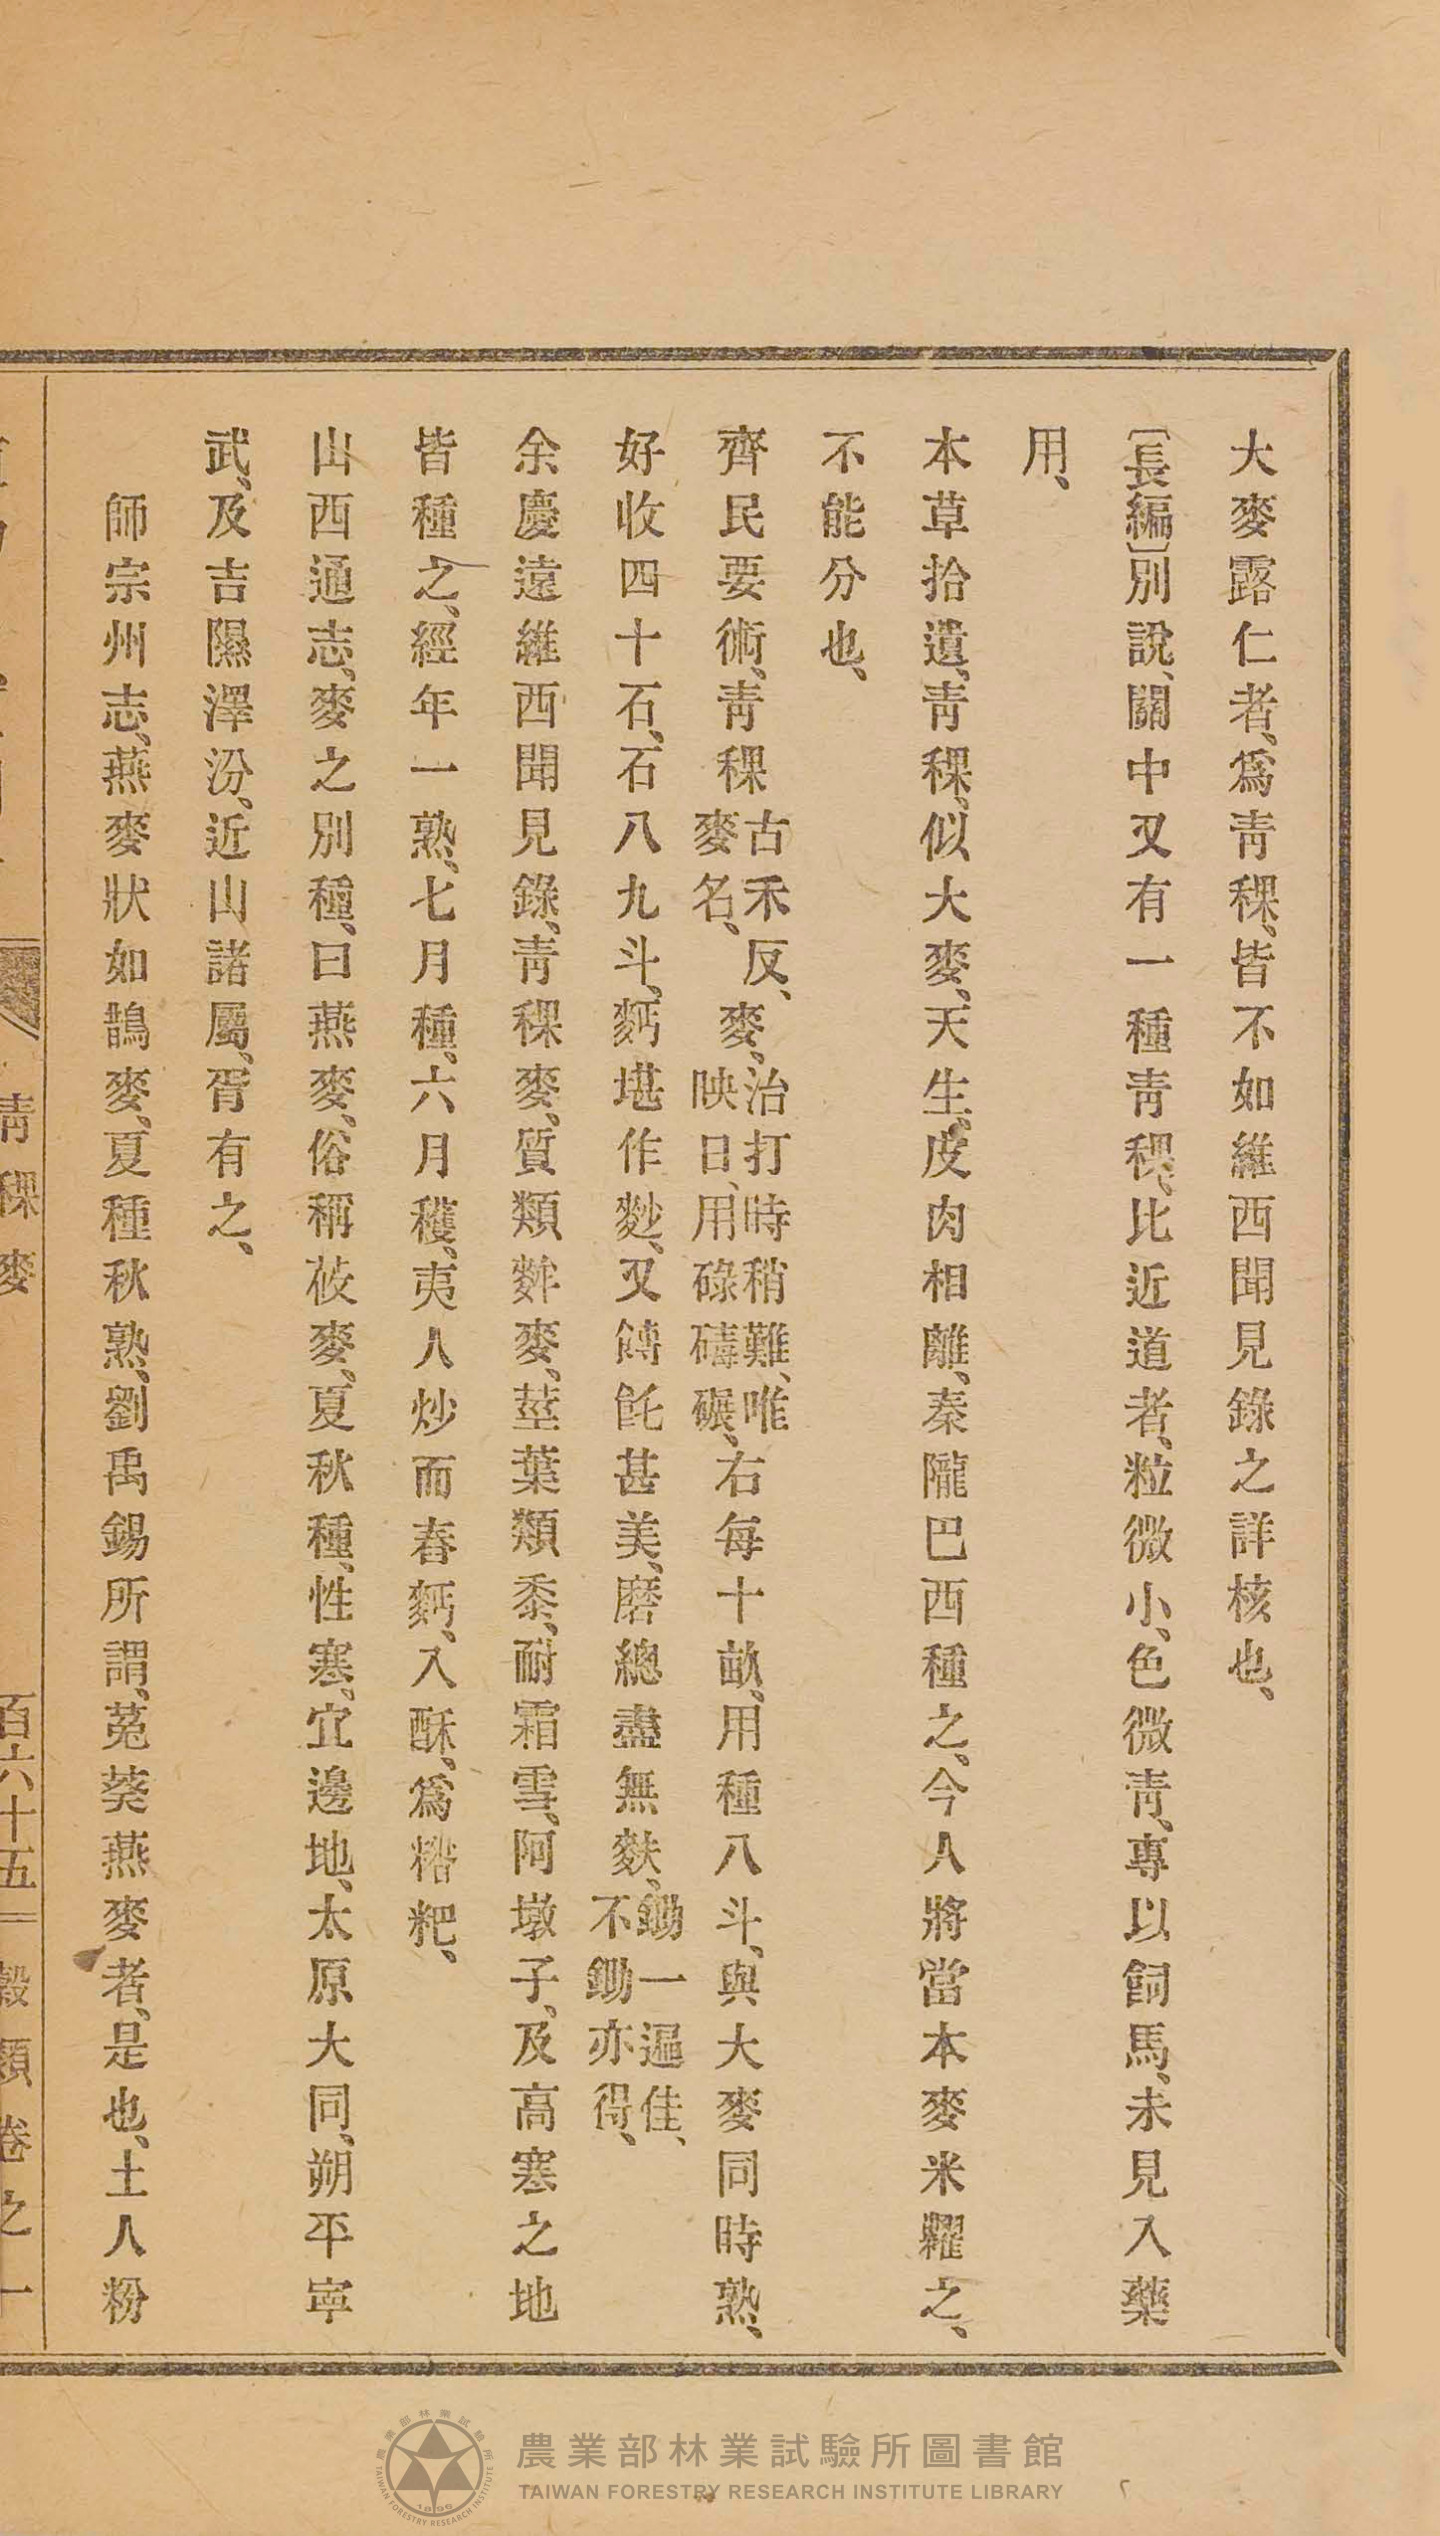 大麥露仁者、爲靑稞、皆不如維西聞見錄之詳核也、
〔長編〕別說、關中又有一種靑稞、比近道者、粒微小、色微靑、專以飼馬、未見入藥
用、
本草拾遺、靑稞、似大麥、天生、皮肉相離、秦隴巴西種之、今人將當本麥米糶之、
不能分也、
齊民要術、靑稞古禾反、麥名、麥、治打時稍難、唯映日、用碌碡碾、右每十畝、用種八斗、與大麥同時熟、
好收四十石、石八九斗、麪堪作麨、又餺飥甚美、磨總盡無麩、鋤一遍佳、不鋤亦得、
余慶遠維西聞見錄、靑稞麥、質類麰麥、莖葉類黍、耐霜雪、阿墩子、及高寒之地
皆種之、經年一熟、七月種、六月穫、夷人炒而舂麪、入酥、爲糌粑、
山西通志、麥之別種、曰燕麥、俗稱莜麥、夏秋種、性寒、宜邊地、太原大同、朔平寧
武、及吉隰澤汾、近山諸屬、胥有之、
師宗州志、燕麥狀如鵲麥、夏種秋熟、劉禹錫所謂、菟葵燕麥者、是也、土人粉
靑稞麥
百六十五
穀類卷之一
農業部林業試驗所圖書館
TAIWAN FORESTRY RESEARCH INSTITUTE LIBRARY